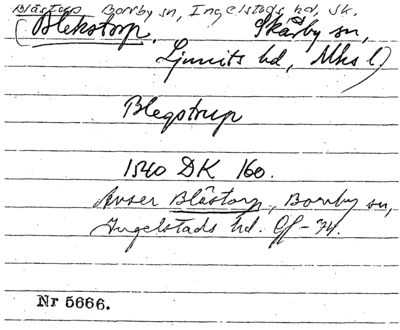 Blästorp Borrby sn, Ingelstads hd, Sk.
(Blekstorp. Skårby sn,
Ljunits hd, Mhs l)
Blegstrup
1540 DK 160.
Avser Blästorp, Borrby sn,
Ingelstads hd. Cf -
Nr 5666.